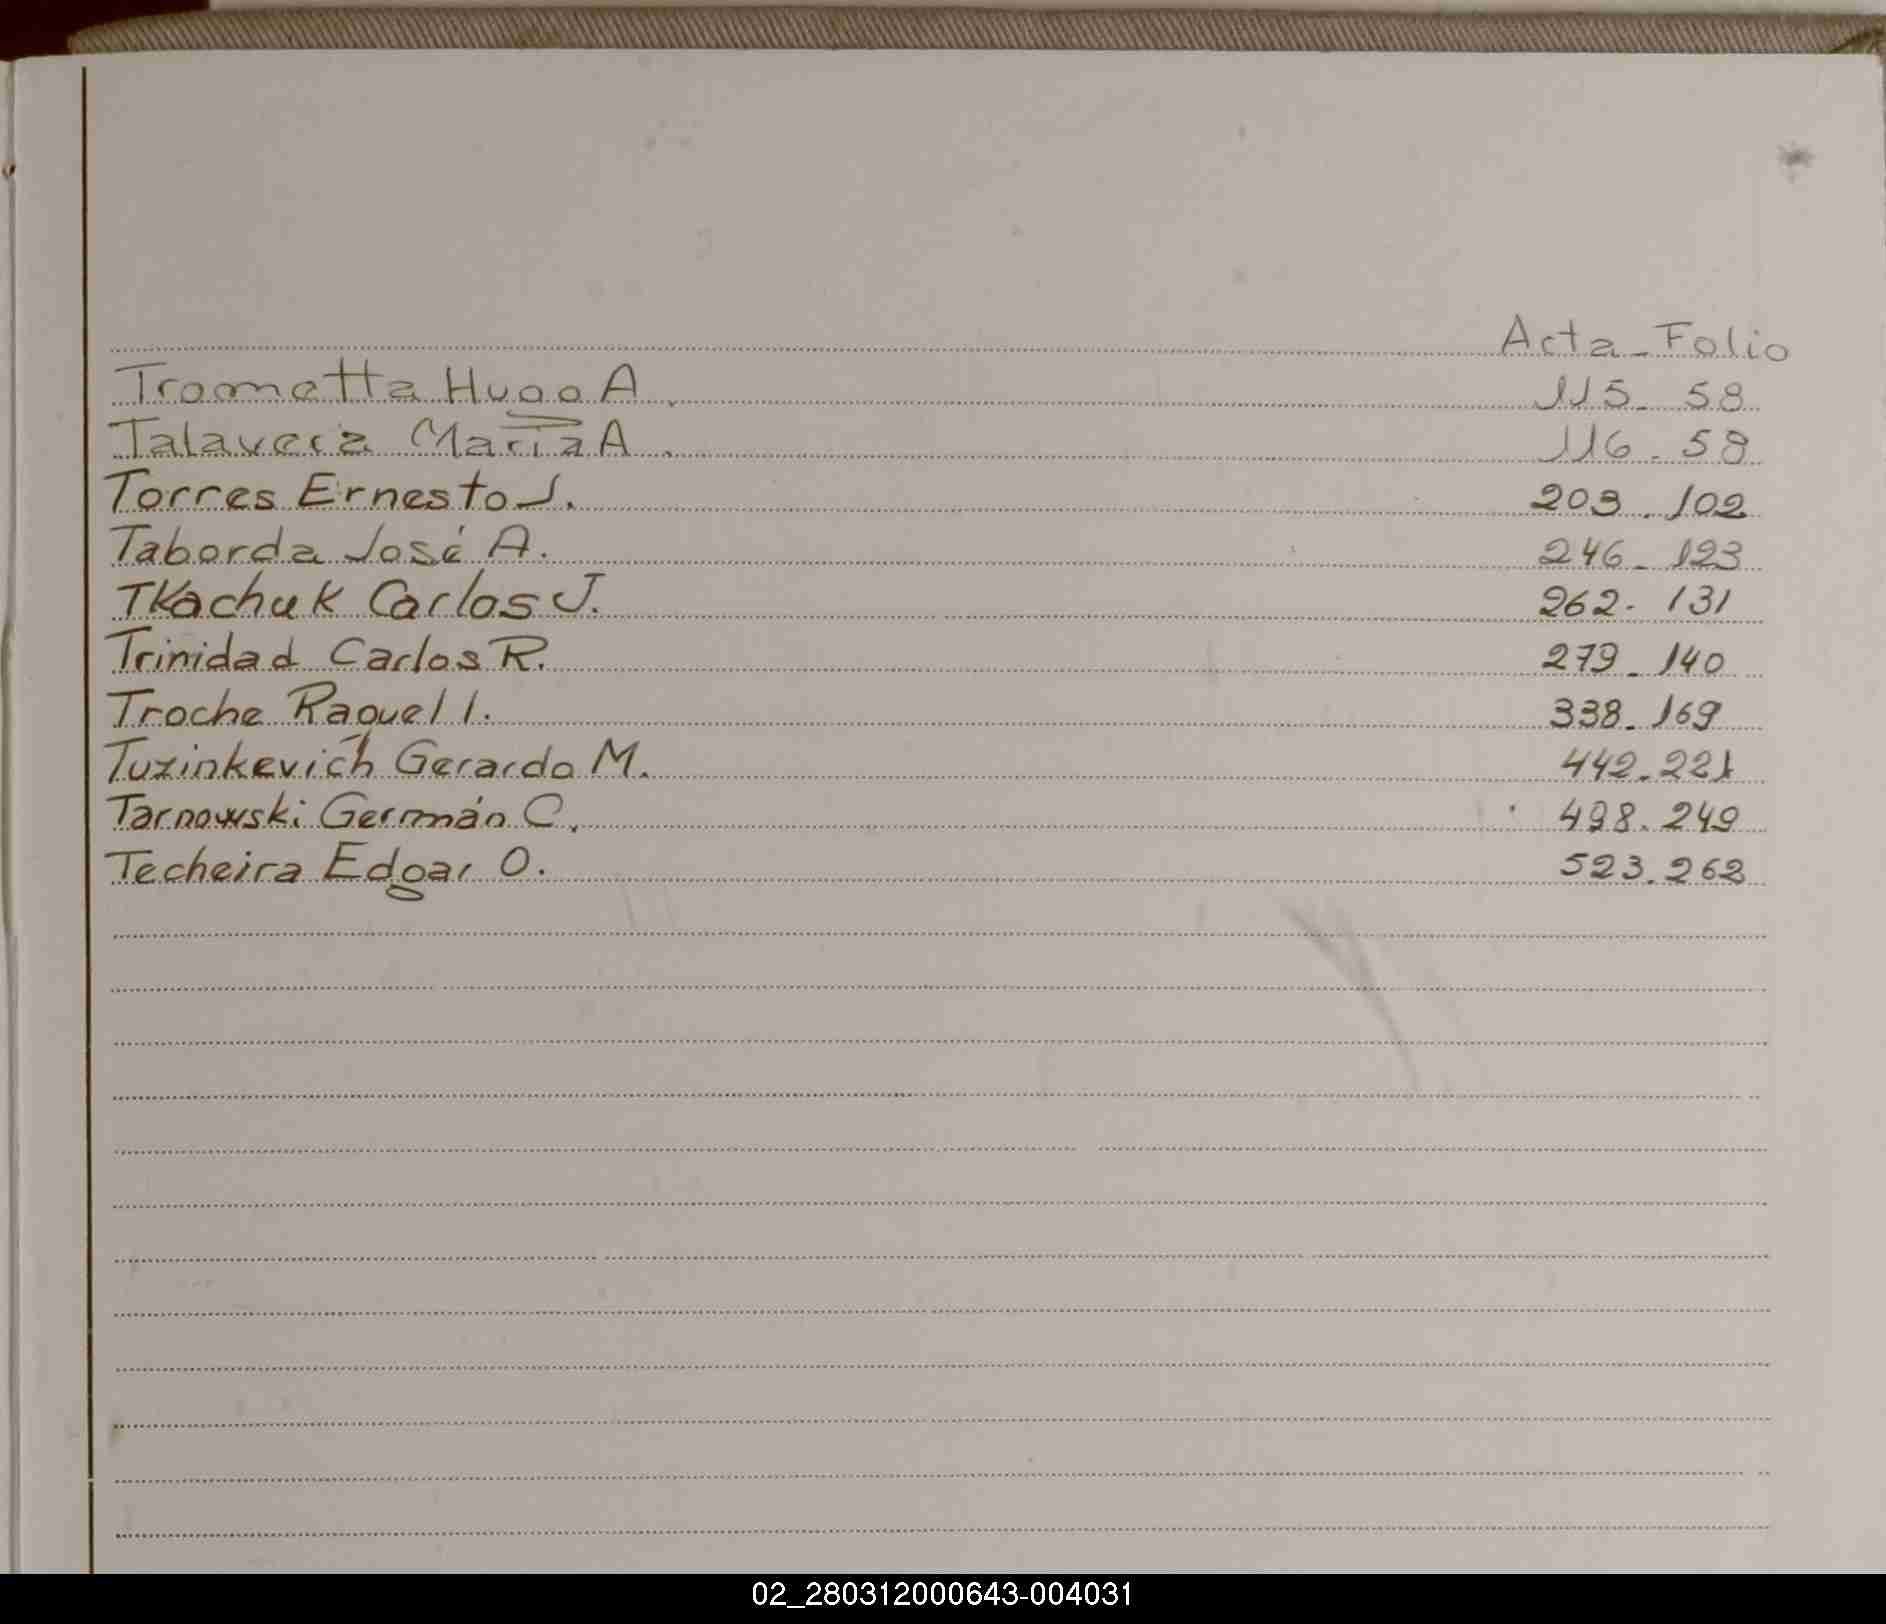 Acta - Folio
Trometta Hugo A. 115 - 58
Talavera María A. 116 - 58
Torres Ernesto J. 203 - 102
Taborda José A. 246 - 123
TKachuk Carlos J. 262 - 131
Trinidad Carlos R. 279 - 140
Troche Raquel I. 338 - 169
Tuzinkevich Gerardo M. 442 - 221
Tarnowski Germán C. 498 - 249
Techeira Edgar O. 523 - 262
02_280312000643-004031